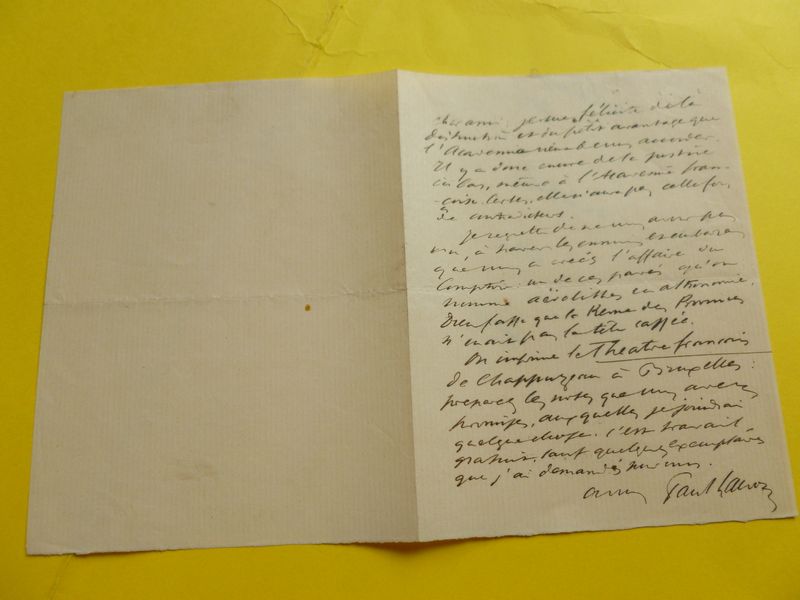 cher ami, je me félicite de la
distinction et du petit avantage que
l'Académie vient de vous accorder.
Il y a donc encore de la justice
ici bas, même à l'Académie fran-
çaise. Certes, elle n'aura pas cette fois
de contradicteurs.
Je regrette de ne vous avoir pas
vu, à travers les ennuis et embarras
que vous a créés l'affaire du
Comptoir: un de ces pavés qu'on
nomme aërolithes en astronomie.
Dieu fasse que la Revue des Provinces
n'en ait pas la tête cassée.
On imprime le Théatre françois
de Chappuzeau à Bruxelles:
préparez les notes que vous avez
promises, auxquelles je joindrai
quelque chose. C'est travail
gratuit, sauf quelques exemplaires
que j'ai demandés pour vous.
Paul Lacroix